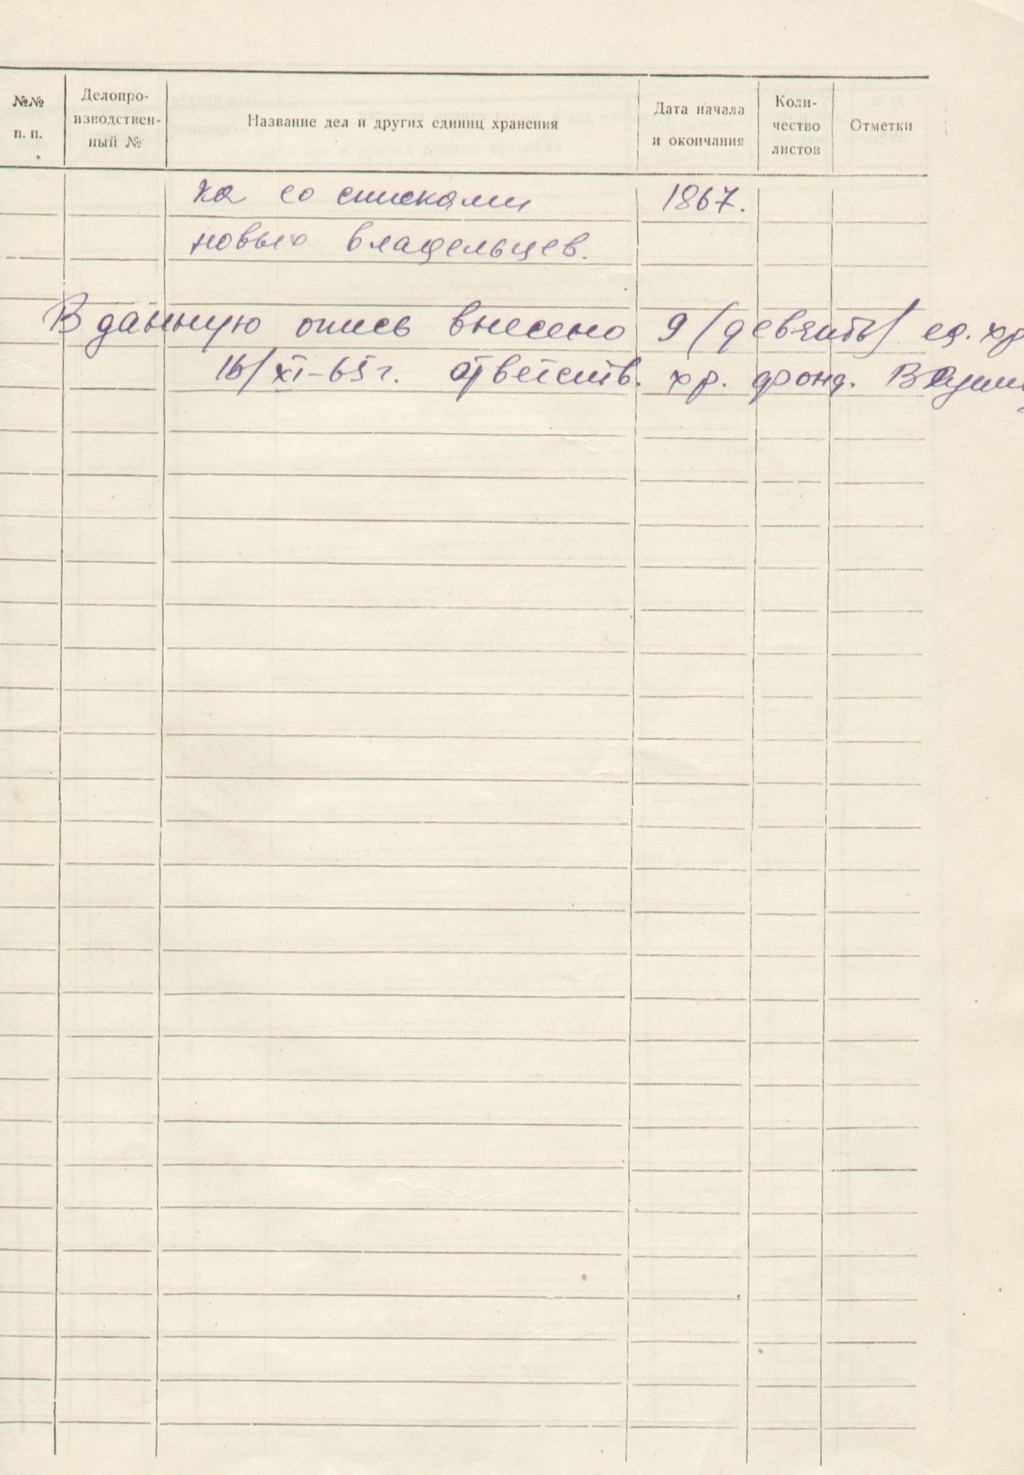 №№
п. п.
Делопро-
изводствен-
ный №
Название дел и других единиц хранения
Дата начала
и окончания
Коли-
чество
листов
Отметки
ка со списками 1867.
новых владельцев.
В данную опись внесено 9 (девять) ед. хр
16/XI-65 г. ответств. хр. фонд.